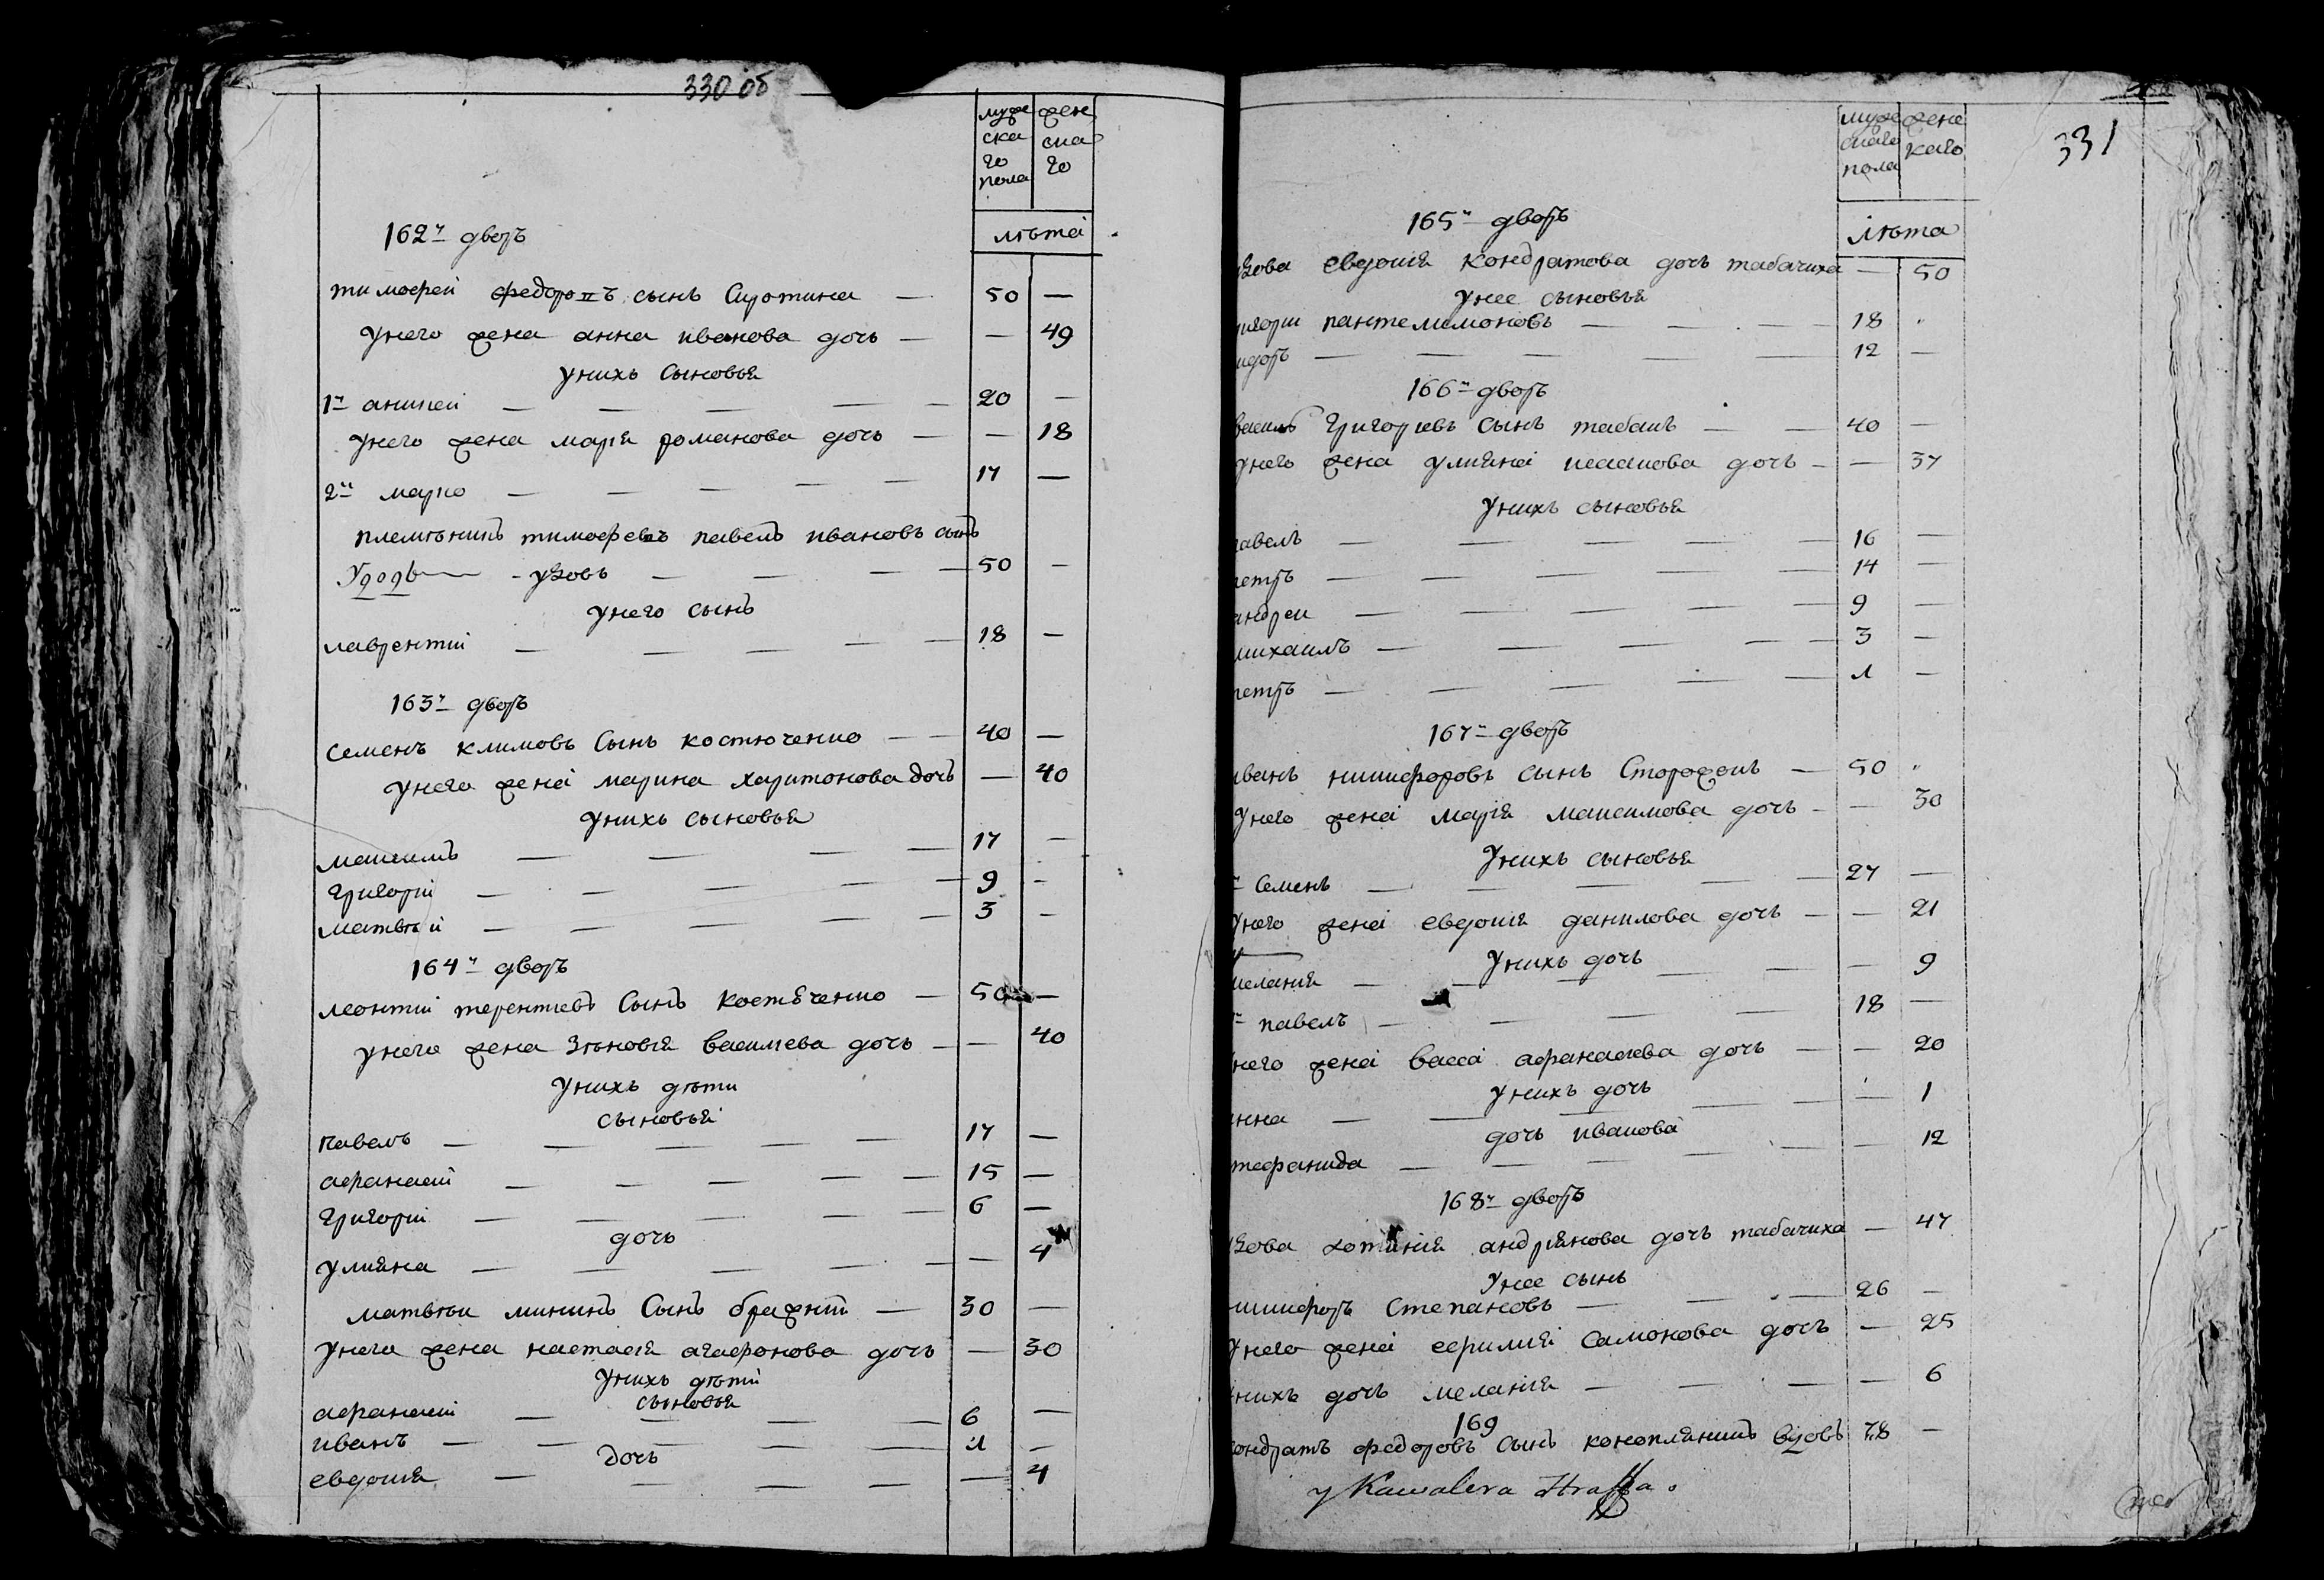 330 об
муже жен
ска ска
го го
пола
лѣта
162й дворъ
тимофей федоровъ сынъ Сиротина — 50 —
унего жена анна иванова дочь — — 49
унихъ сыновья
1й аникеи — — — — — 20 —
унего жена марія романова дочь — — 18
2й марко — — — — — 17 —
племѣникъ тимофеевъ павелъ ивановъ сынъ
Удодъ - удовъ — — — — 50 —
унего сынъ
лаврентіи — — — — — 18 —
163й дворъ
семенъ климовъ сынъ костюченко — — 40 —
унего жена марина харитонова дочь — 40
унихъ сыновья
максимъ — — — — 17 —
григоріи — — — — — 9 —
матвѣй — — — — — 3 —
164й дворъ
леонтіи терентіевъ сынъ костюченко — 50 —
унего жена зѣновія василева дочь — — 40
унихъ дѣти
сыновья
павелъ — — — — — 17 —
афанасіи — — — — — 15 —
григоріи — — — — — 6 —
дочь
улияна — — — — — — 4
матвѣи мининъ сынъ бражніи — 30 —
унего жена настасія агафонова дочь — 30
унихъ дѣти
сыновья
афанасіи — — — — 6 —
иванъ — — — — — 1 —
дочь
евдокия — — — — — 4
муже жене
скаго каго
пола
331
лѣта
165й дворъ
дова евдокия кондратова дочь табачиха — 50
унее сыновья
игории пантелимоновъ — — — 18
идоръ — — — — — 12 —
166й дворъ
василь григориевъ сынъ табакъ — — 40 —
унего жена улияна исакова дочь — — 37
унихъ сыновья
павелъ — — — — — 16 —
петръ — — — — — 14 —
андреи — — — — — 9 —
михаилъ — — — — — 3 —
петръ — — — — — 1 —
167й дворъ
иванъ никифоровъ сынъ Сторожокъ — 50
унего жена марія максимова дочь — — 30
унихъ сыновья
семенъ — — — — — 27 —
унего жена евдокия данилова дочь — — 21
унихъ дочь
мелания — — — — — — 9
павелъ — — — — 18 —
него жена васса афанасиева дочь — — 20
унихъ дочь
анна — — — — — — 1
дочь иванова
тефанида — — — — — — 12
168й дворъ
дова хотиния андриянова дочь табачиха — 47
унее сынъ
никифоръ Степановъ — — — 26 —
унего жена ефимия Самонова дочь — 25
унихъ дочь мелания — — — — 6
169
кондратъ федоровъ сынъ конопляникъ вдовъ 78 —
у Kawalera Straffa.